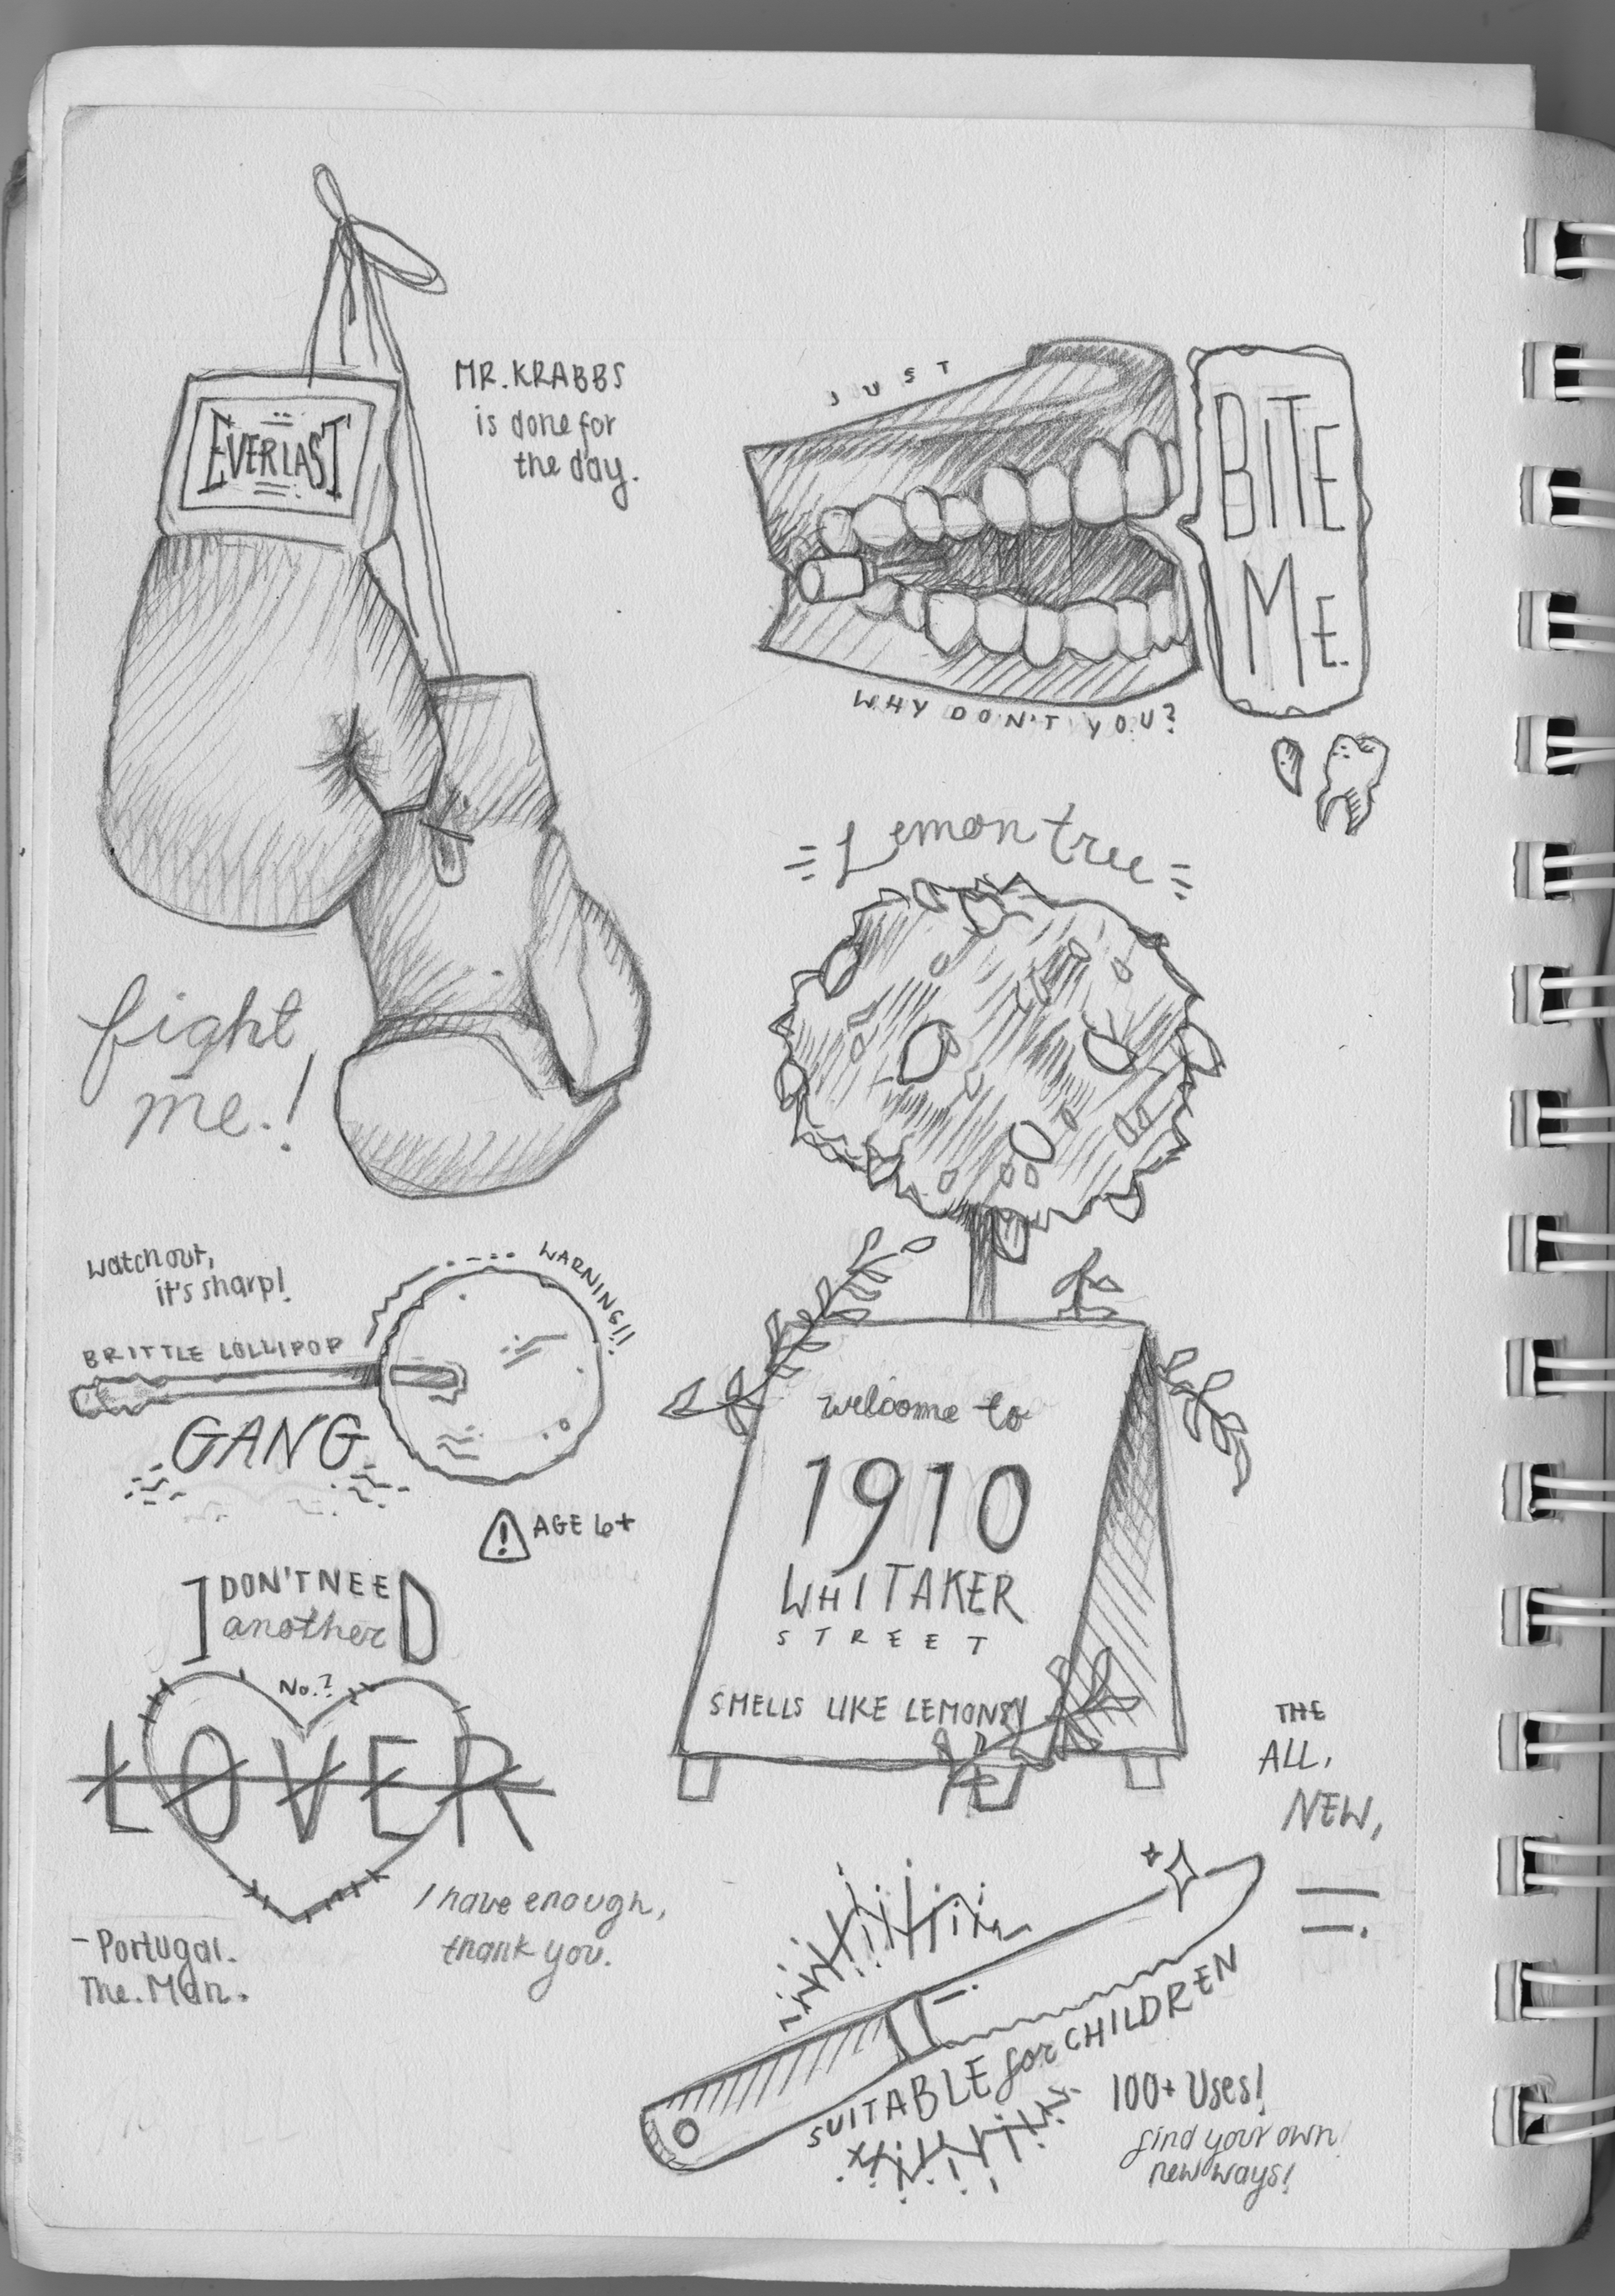 EVERLAST
MR. KRABBS
is done for
the day.
fight
me.!
JUST
BITE
ME.
WHY DON'T YOU?
Lemon tree
watch out,
it's sharp!
WARNING!!
BRITTLE LOLLIPOP
GANG
AGE 6+
welcome to
1910
WHITAKER
STREET
SMELLS LIKE LEMONSY
I DON'T NEED
another
No.?
LOVER
I have enough,
thank you.
- Portugal.
The. Man.
THE
ALL,
NEW,
SUITABLE for CHILDREN
100+ Uses!
find your own
new ways!